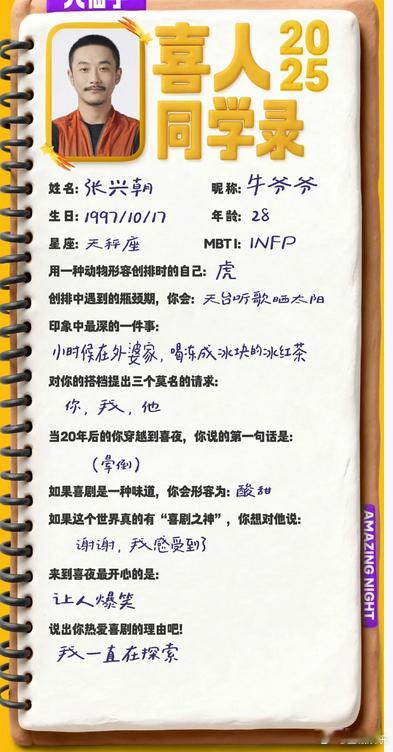 喜人 2025
同学录
姓名：张兴朝 昵称：牛爷爷
生日：1997/10/17 年龄：28
星座：天秤座 MBTI：INFP
用一种动物形容创排时的自己：虎
创排中遇到的瓶颈期，你会：天台听歌晒太阳
印象中最深的一件事：
小时候在外婆家，喝冻成冰块的冰红茶
对你的搭档提出三个莫名的请求：
你，我，他
当20年后的你穿越到喜夜，你说的第一句话是：
（晕倒）
如果喜剧是一种味道，你会形容为：酸甜
如果这个世界真的有“喜剧之神”，你想对他说：
谢谢，我感受到了
来到喜夜最开心的是：
让人爆笑
说出你热爱喜剧的理由吧！
我一直在探索
AMAZING NIGHT